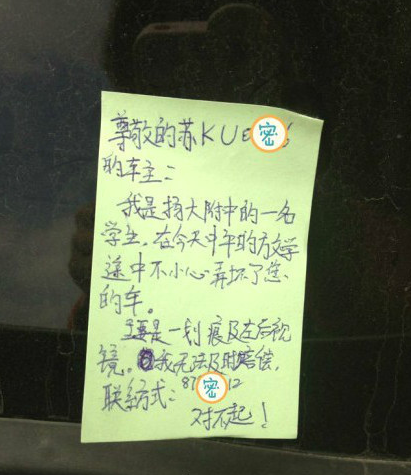 尊敬的苏KUE密6
的车主:
我是扬大附中的一名
学生,在今天中午的放学
途中不小心弄坏了您
的车。
主要是一划痕及左后视
镜。我无法及时赔偿,
联系方式:87密12
对不起!